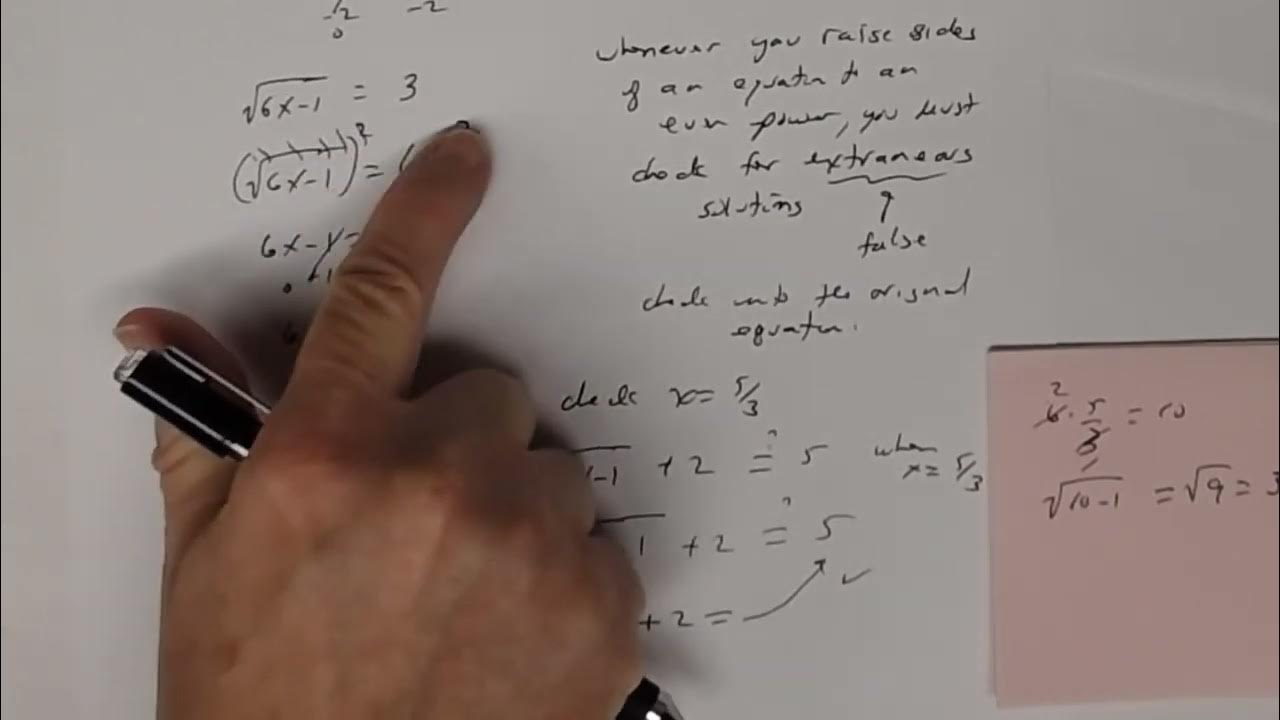 -2 -2
0
√6x-1 = 3
(√6x-1)² = (
6x-1=
whenever you raise sides
of an equation to an
even power, you must
check for extraneous
solutions
false
check into the original
equation.
check x= 5/3
-1 + 2 ≟ 5 when
x= 5/3
1 + 2 ≟ 5
+ 2 = ✓
2
6 · 5/3 = 10
√10-1 = √9 = 3